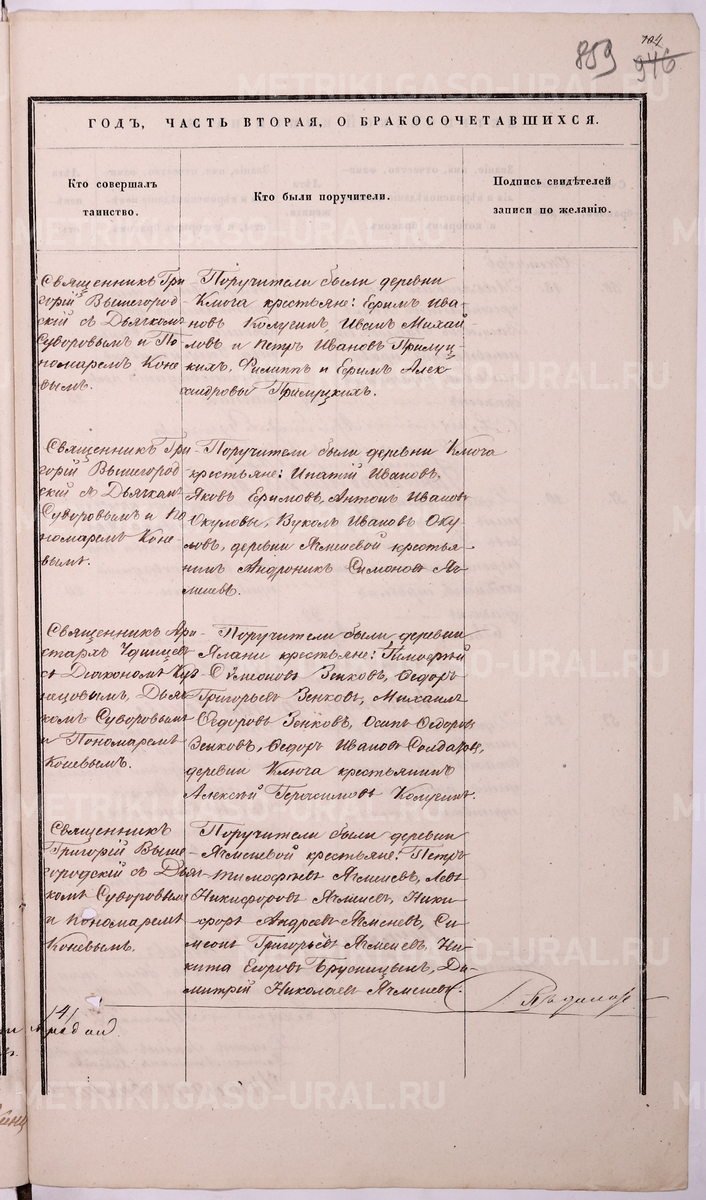 104
859 946
ГОДЪ, ЧАСТЬ ВТОРАЯ, О БРАКОСОЧЕТАВШИХСЯ.
Кто совершалъ
таинство.
Кто были поручители.
Подпись свидѣтелей
записи по желанію.
Священникъ Гри
горій Вышегород
скій съ Дьячкомъ
Суворовымъ и По
номаремъ Коне
вымъ.
Поручители были деревни
Ключа крестьяне: Ефимъ Ива
новъ Колугинъ, Иванъ Михай
ловъ и Петръ Ивановъ Прилуц
кихъ, Филиппъ и Ефимъ Алек
сандровы Прилуцкихъ.
Священникъ Гри
горій Вышегород
скій съ Дьячкомъ
Суворовымъ и По
номаремъ Коне-
вымъ.
Поручители были деревни Ключа
крестьяне: Ипатій Ивановъ,
Яковъ Ефимовъ, Антонъ Ивановъ
Окуловы, Вуколъ Ивановъ Оку
ловъ, деревни Ячменевой крестья
нинъ Андроникъ Симоновъ Яч
меневъ.
Священникъ Ари-
стархъ
съ Діакономъ
Дьяч
комъ Суворовымъ
и Пономаремъ
Коневымъ.
Поручители были деревни
Ялани крестьяне:
Сумеоновъ Зенковъ, Ѳедоръ
Григорьевъ Зенковъ, Михаилъ
Ѳедоровъ Зенковъ, Осипъ Ѳедоровъ
Зенковъ, Ѳедоръ Ивановъ Солдатовъ,
деревни Ключа крестьянинъ
Алексѣй Герасимовъ Колугинъ.
Священникъ
Григорій Выше
городскій съ Дьяч
комъ Суворовымъ
и Пономаремъ
Коневымъ.
Поручители были деревни
Ячменевой крестьяне: Петръ
Тимофѣевъ Ячменевъ, Левъ
Никифоровъ Ячменевъ, Ники
форъ Андреевъ Ячменевъ, Си
меонъ Григорьевъ Ячменевъ, Ни
кита Егоровъ Брусницынъ, Ди
митрій Николаевъ Ячменевъ.
/4/
METRIKI.GASO-URAL.RU